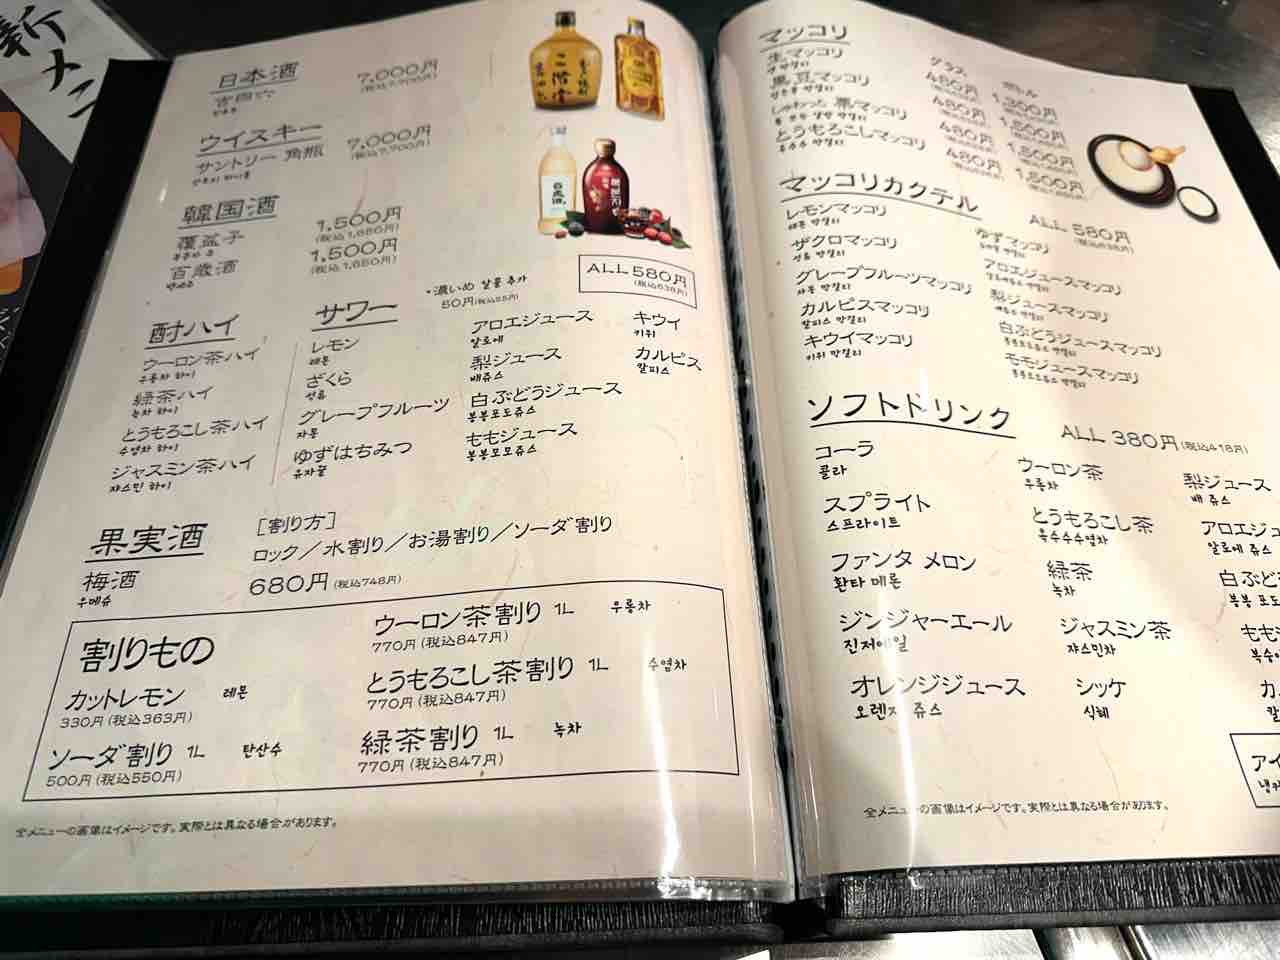 新メニ
日本酒
吉四六
7,000円
(税込7,700円)
ウイスキー
サントリー 角瓶
산토리 하이볼
7,000円
(税込7,700円)
韓国酒
覆盆子
복분자 주
1,500円
(税込1,650円)
百歳酒
백세주
1,500円
(税込1,650円)
二階堂
百歳酒
酎ハイ
ウーロン茶ハイ
우롱차 하이
緑茶ハイ
녹차 하이
とうもろこし茶ハイ
수염차 하이
ジャスミン茶ハイ
쟈스민 하이
サワー
・濃いめ 알콜 추가
50円(税込55円)
ALL 580円
(税込638円)
レモン
레몬
ざくら
석류
グレープフルーツ
자몽
ゆずはちみつ
유자꿀
アロエジュース
알로에
梨ジュース
배쥬스
白ぶどうジュース
봉봉포도쥬스
ももジュース
봉봉모모쥬스
キウイ
키위
カルピス
칼피스
果実酒
梅酒
우메슈
[割り方]
ロック/水割り/お湯割り/ソーダ割り
680円(税込748円)
割りもの
カットレモン 레몬
330円(税込363円)
ソーダ割り 1L 탄산수
500円(税込550円)
ウーロン茶割り 1L 우롱차
770円(税込847円)
とうもろこし茶割り 1L 수염차
770円(税込847円)
緑茶割り 1L 녹차
770円(税込847円)
全メニューの画像はイメージです。実際とは異なる場合があります。
マッコリ
グラス ボトル
生マッコリ
생 막걸리
480円 1,300円
黒豆マッコリ
검은콩 막걸리
480円 1,500円
しゅわっと 栗マッコリ
톡 쏘는 알밤 막걸리
480円 1,500円
とうもろこしマッコリ
옥수수 막걸리
480円 1,500円
マッコリカクテル
ALL 580円
(税込638円)
レモンマッコリ
레몬 막걸리
ザクロマッコリ
석류 막걸리
グレープフルーツマッコリ
자몽 막걸리
カルピスマッコリ
칼피스 막걸리
キウイマッコリ
키위 막걸리
ゆずマッコリ
유자꿀 막걸리
アロエジュースマッコリ
알로에쥬스 막걸리
梨ジュースマッコリ
배쥬스 막걸리
白ぶどうジュースマッコリ
봉봉포도쥬스 막걸리
モモジュースマッコリ
봉봉모모쥬스 막걸리
ソフトドリンク
ALL 380円(税込418円)
コーラ
콜라
スプライト
스프라이트
ファンタ メロン
환타 메론
ジンジャーエール
진저에일
オレンジジュース
오렌지 쥬스
ウーロン茶
우롱차
とうもろこし茶
옥수수수염차
緑茶
녹차
ジャスミン茶
쟈스민차
シッケ
식혜
梨ジュース
배 쥬스
アロエジュ
알로에 쥬스
白ぶど
봉봉 포도
ももジ
복숭아
カ
칼
アイ
냉커
全メニューの画像はイメージです。実際とは異なる場合があります。